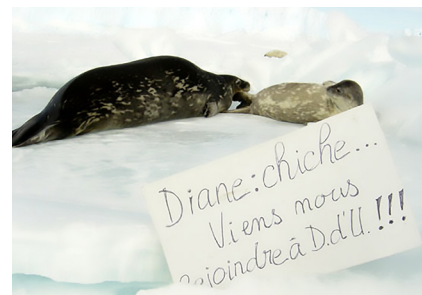 Diane: chiche...
Viens nous
Rejoindre à D.d'U.!!!